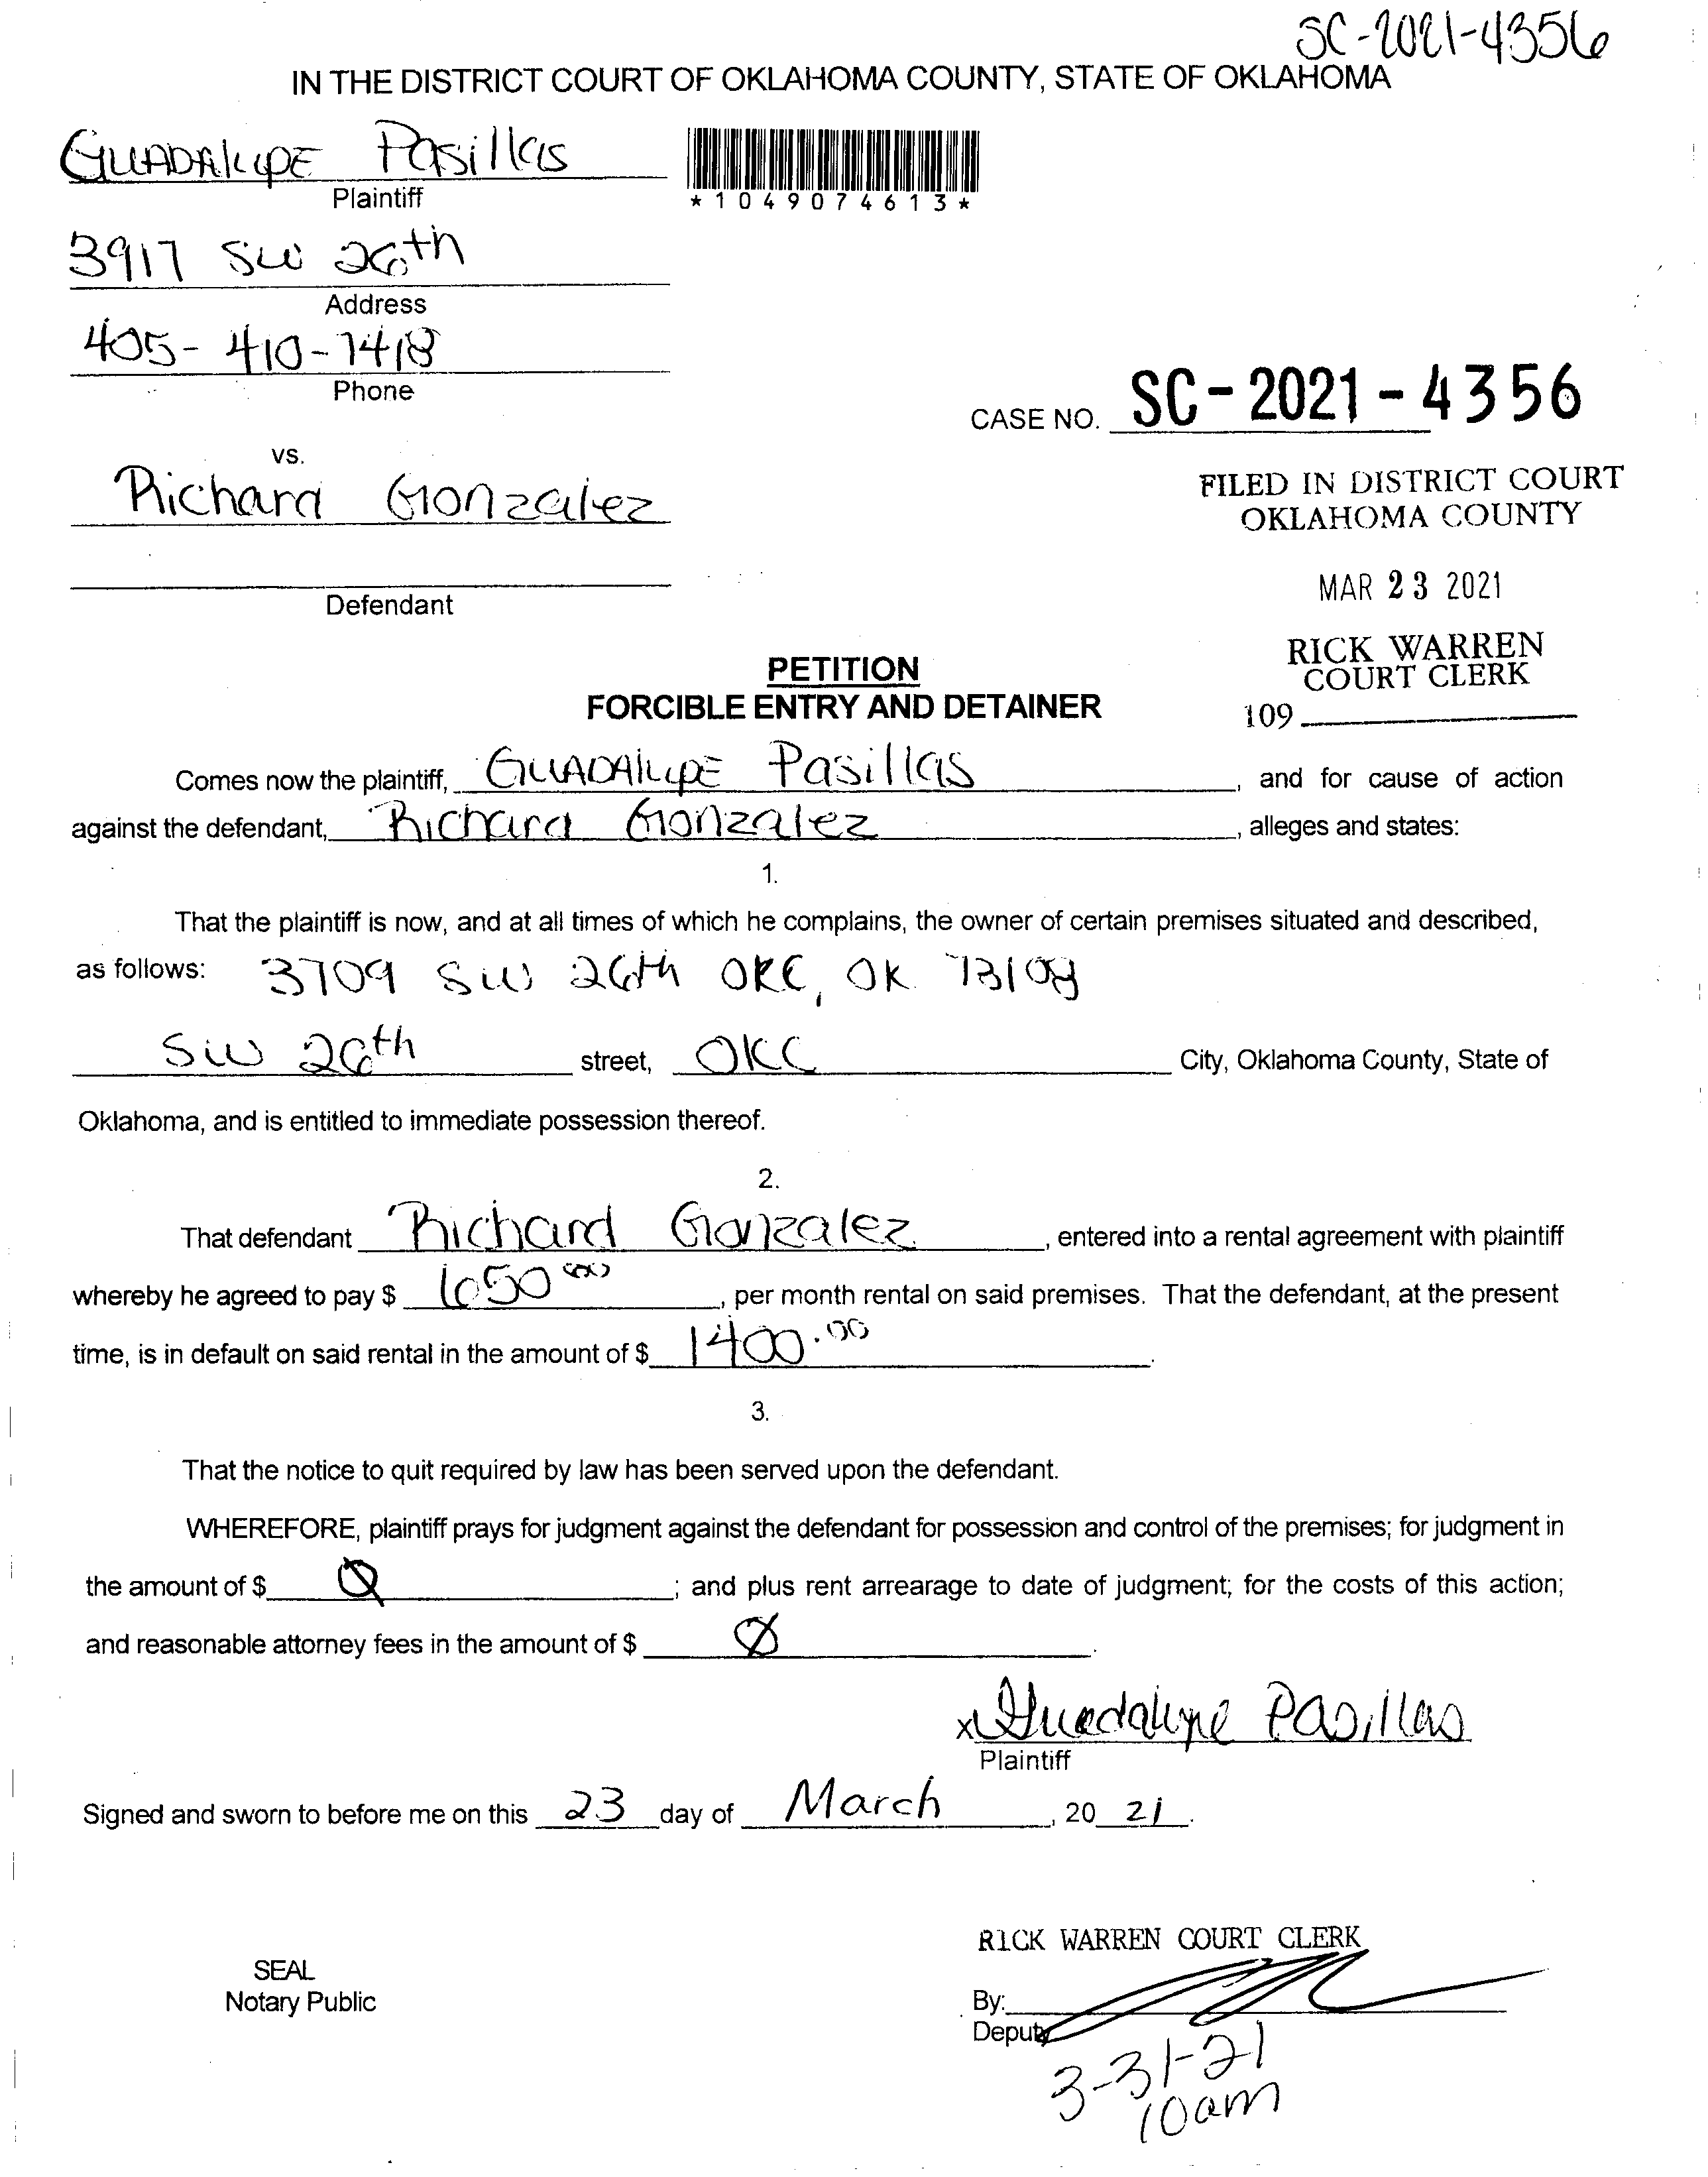 SC-2021-4356
IN THE DISTRICT COURT OF OKLAHOMA COUNTY, STATE OF OKLAHOMA
GUADALUPE Pasillas
Plaintiff
*1049074613*
3917 SW 26th
Address
405-410-7418
Phone
CASE NO. SC-2021-4356
vs.
Richard Gonzalez
FILED IN DISTRICT COURT
OKLAHOMA COUNTY
MAR 23 2021
Defendant
RICK WARREN
COURT CLERK
109
PETITION
FORCIBLE ENTRY AND DETAINER
Comes now the plaintiff, GUADALUPE Pasillas, and for cause of action
against the defendant, Richard Gonzalez, alleges and states:
1.
That the plaintiff is now, and at all times of which he complains, the owner of certain premises situated and described,
as follows: 3709 SW 26th OKC, OK 73108
SW 26th street, OKC City, Oklahoma County, State of
Oklahoma, and is entitled to immediate possession thereof.
2.
That defendant Richard Gonzalez, entered into a rental agreement with plaintiff
whereby he agreed to pay $ 650 00, per month rental on said premises. That the defendant, at the present
time, is in default on said rental in the amount of $ 1400.00.
3.
That the notice to quit required by law has been served upon the defendant.
WHEREFORE, plaintiff prays for judgment against the defendant for possession and control of the premises; for judgment in
the amount of $ Ø; and plus rent arrearage to date of judgment; for the costs of this action;
and reasonable attorney fees in the amount of $ Ø.
x Guadalupe Pasillas
Plaintiff
Signed and sworn to before me on this 23 day of March, 20 21.
RICK WARREN COURT CLERK
SEAL
Notary Public
By:
Deputy
3-31-21
10am